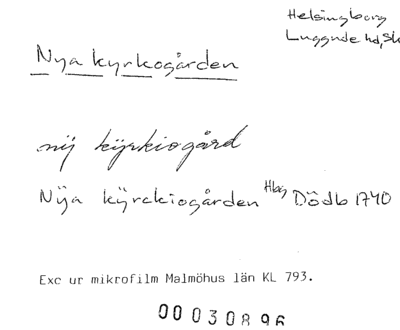 Helsingborg
Luggude hd, Sk
Nya kyrkogården
nÿ kÿrkiogård
Nÿa kÿrckiogården Hbg Dödb 1740
Exc ur mikrofilm Malmöhus län KL 793.
00030896